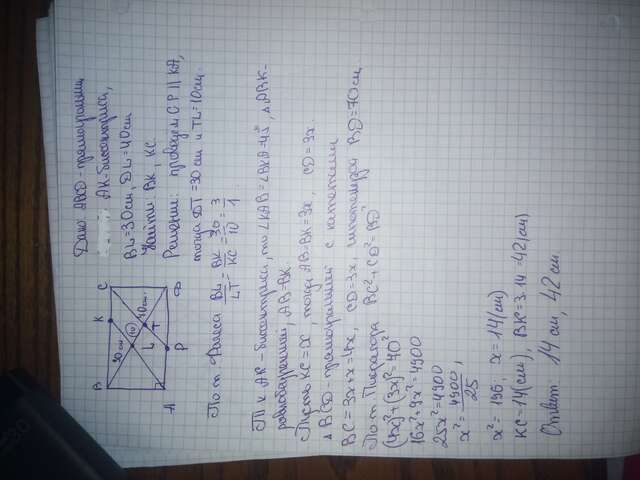 Дано: ABCD - прямоугольник
AK - биссектриса,
BL = 30 см, DL = 40 см
Найти: BK, KC.
Решение: проведем CP || KA,
тогда DT = 30 см и TL = 10 см.
B
K
C
30 см
10
10 см.
L
T
A
P
D
По т Фалеса BL/LT = BK/KC = 30/10 = 3/1
Т к AK - биссектриса, то ∠KAB = ∠BKA = 45°, △ABK -
равнобедренный, AB = BK
Пусть KC = x, тогда AB = BK = 3x, CD = 3x.
△ BCD - прямоугольный с катетами
BC = 3x + x = 4x, CD = 3x, гипотенузой BD = 70 см,
По т Пифагора BC² + CD² = BD²
(4x)² + (3x)² = 70²
16x² + 9x² = 4900
25x² = 4900
x² = 4900/25,
x² = 196; x = 14 (см)
KC = 14 (см), BK = 3·14 = 42 (см)
Ответ: 14 см, 42 см.